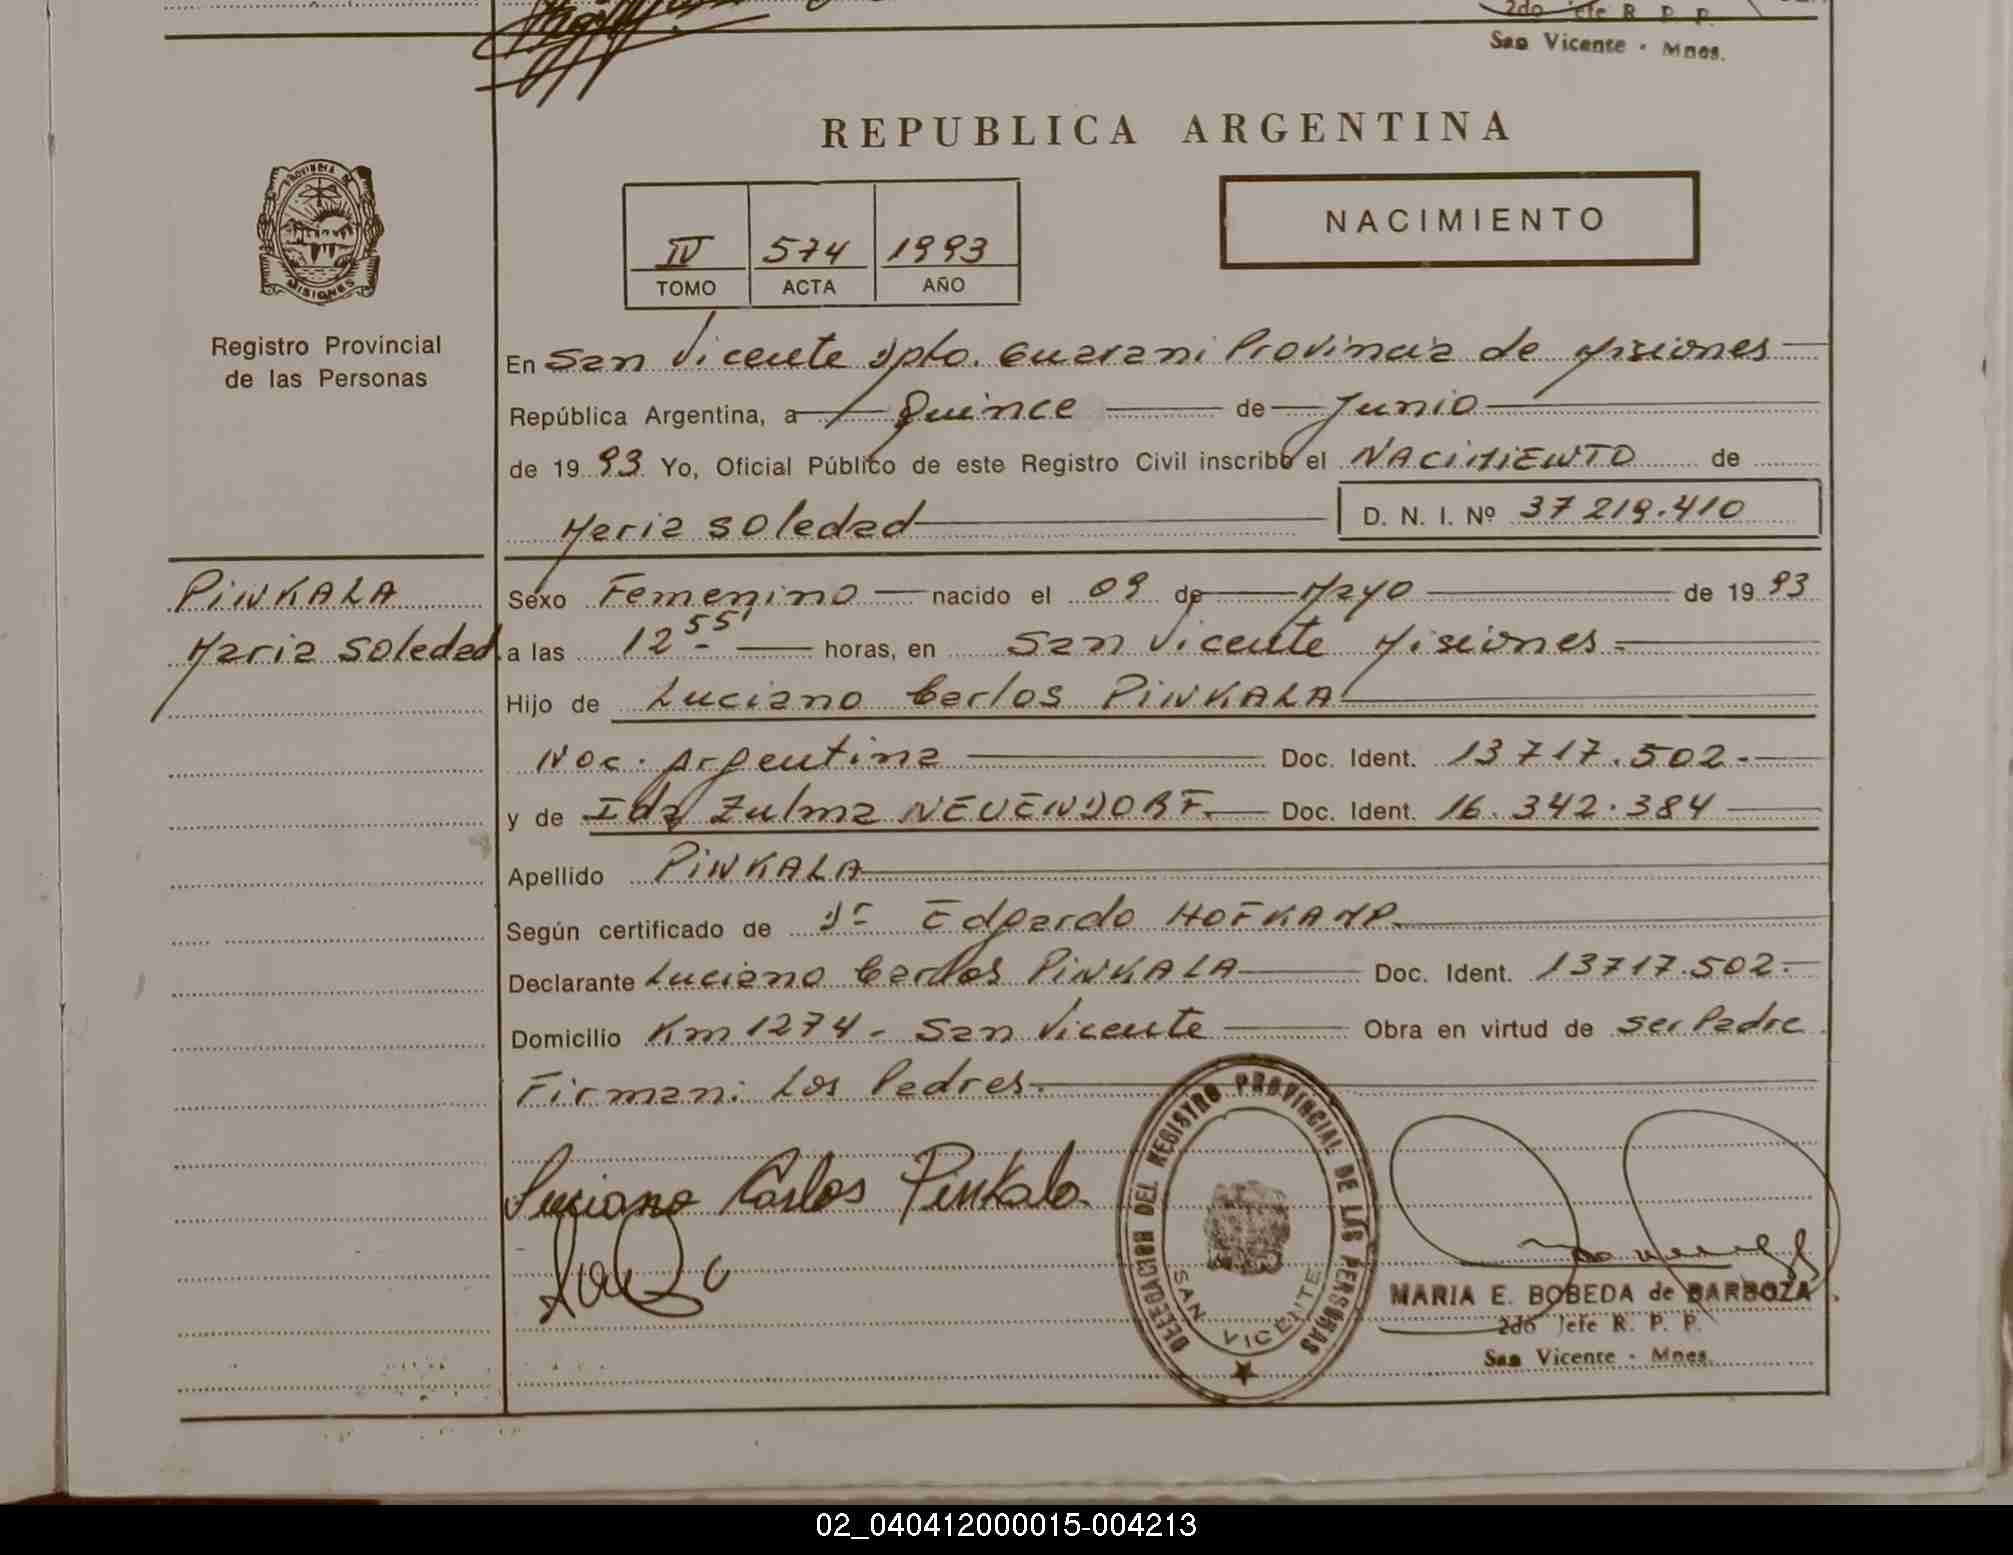 2do Jefe R. P. P.
San Vicente - Mnes.
REPUBLICA ARGENTINA
PROVINCIA DE
MISIONES
Registro Provincial
de las Personas
IV 574 1993
TOMO ACTA AÑO
NACIMIENTO
En San Vicente Dpto. Guarani Provincia de Misiones
República Argentina, a Quince de Junio
de 1993 Yo, Oficial Público de este Registro Civil inscribo el NACIMIENTO de
Maria Soledad D. N. I. Nº 37 219.410
PINKALA
Maria Soledad
Sexo Femenino nacido el 09 de Mayo de 1993
a las 12 55' horas, en San Vicente Misiones
Hijo de Luciano Carlos PINKALA
Nac. Argentina Doc. Ident. 13717.502.-
y de Ida Zulma NEUENDORF Doc. Ident. 16.342.384
Apellido PINKALA
Según certificado de Dr Edgardo HOFKAMP
Declarante Luciano Carlos PINKALA Doc. Ident. 13717.502.-
Domicilio Km 1274 - San Vicente Obra en virtud de ser Padre
Firman: Los Padres.-
Luciano Carlos Pinkala
DELEGACION DEL REGISTRO PROVINCIAL DE LAS PERSONAS
SAN VICENTE
MARIA E. BOBEDA de BARBOZA
2do Jefe R. P. P.
San Vicente - Mnes.
02_040412000015-004213